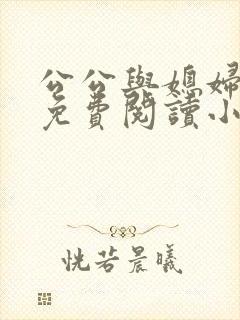 公公與媳婦
免費閱讀小
恍若晨曦